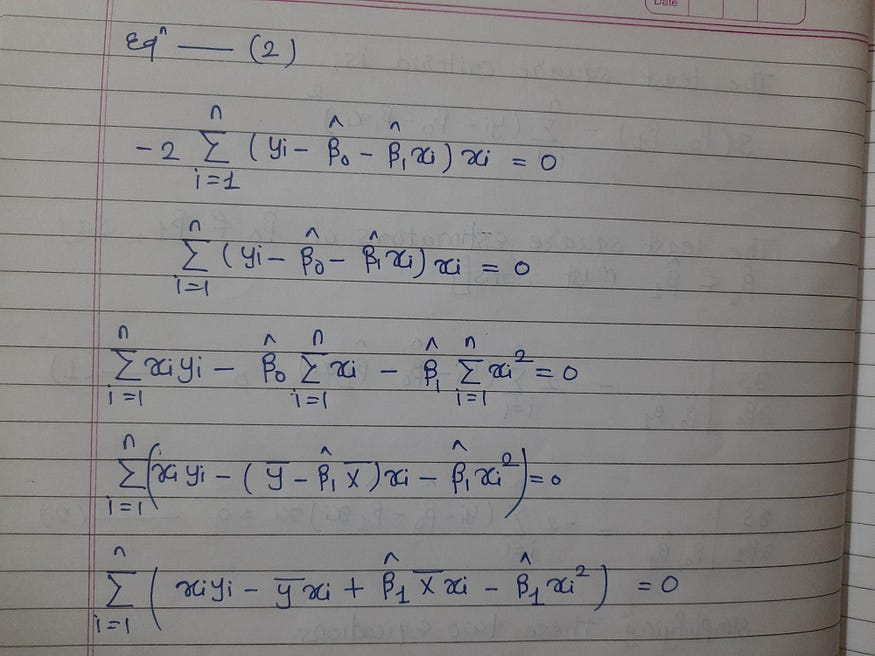 Date
Eqⁿ — (2)
-2 n∑i=1 (yi - β̂₀ - β̂₁xi) xi = 0
n∑i=1 (yi - β̂₀ - β̂₁xi) xi = 0
n∑i=1 xiyi - β̂₀ n∑i=1 xi - β̂₁ n∑i=1 xi² = 0
n∑i=1 (xiyi - (y̅ - β̂₁x̅)xi - β̂₁xi²) = 0
n∑i=1 (xiyi - y̅xi + β̂₁x̅xi - β̂₁xi²) = 0